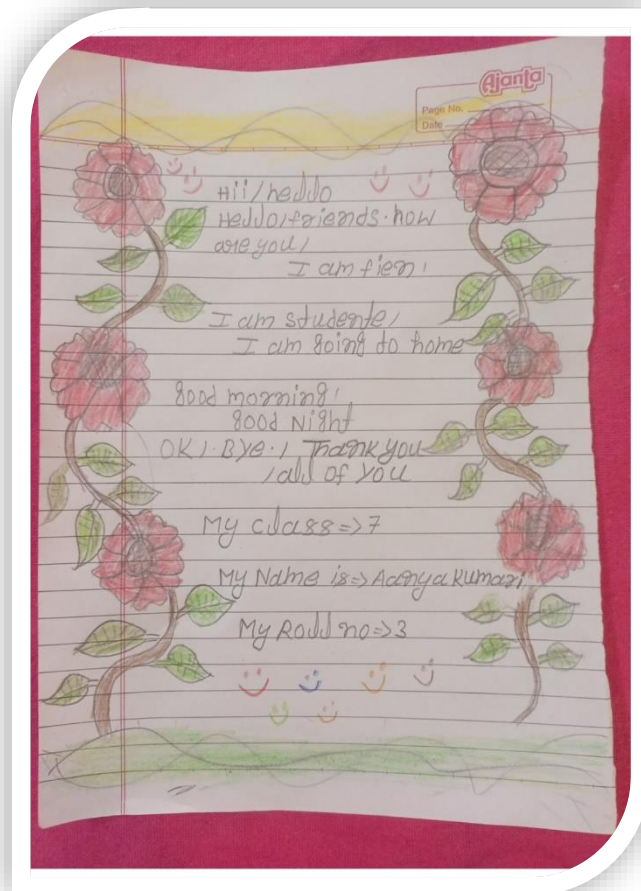 Ajanta
Page No.
Date
Hii/hello
Hello/friends.how
are you/
I am fien!
I am studente/
I am going to home
good morning!
good Night
OK/.Bye./Thank you
/all of you
My class=>7
My Name is=>Aanya Kumari
My Roll no=>3